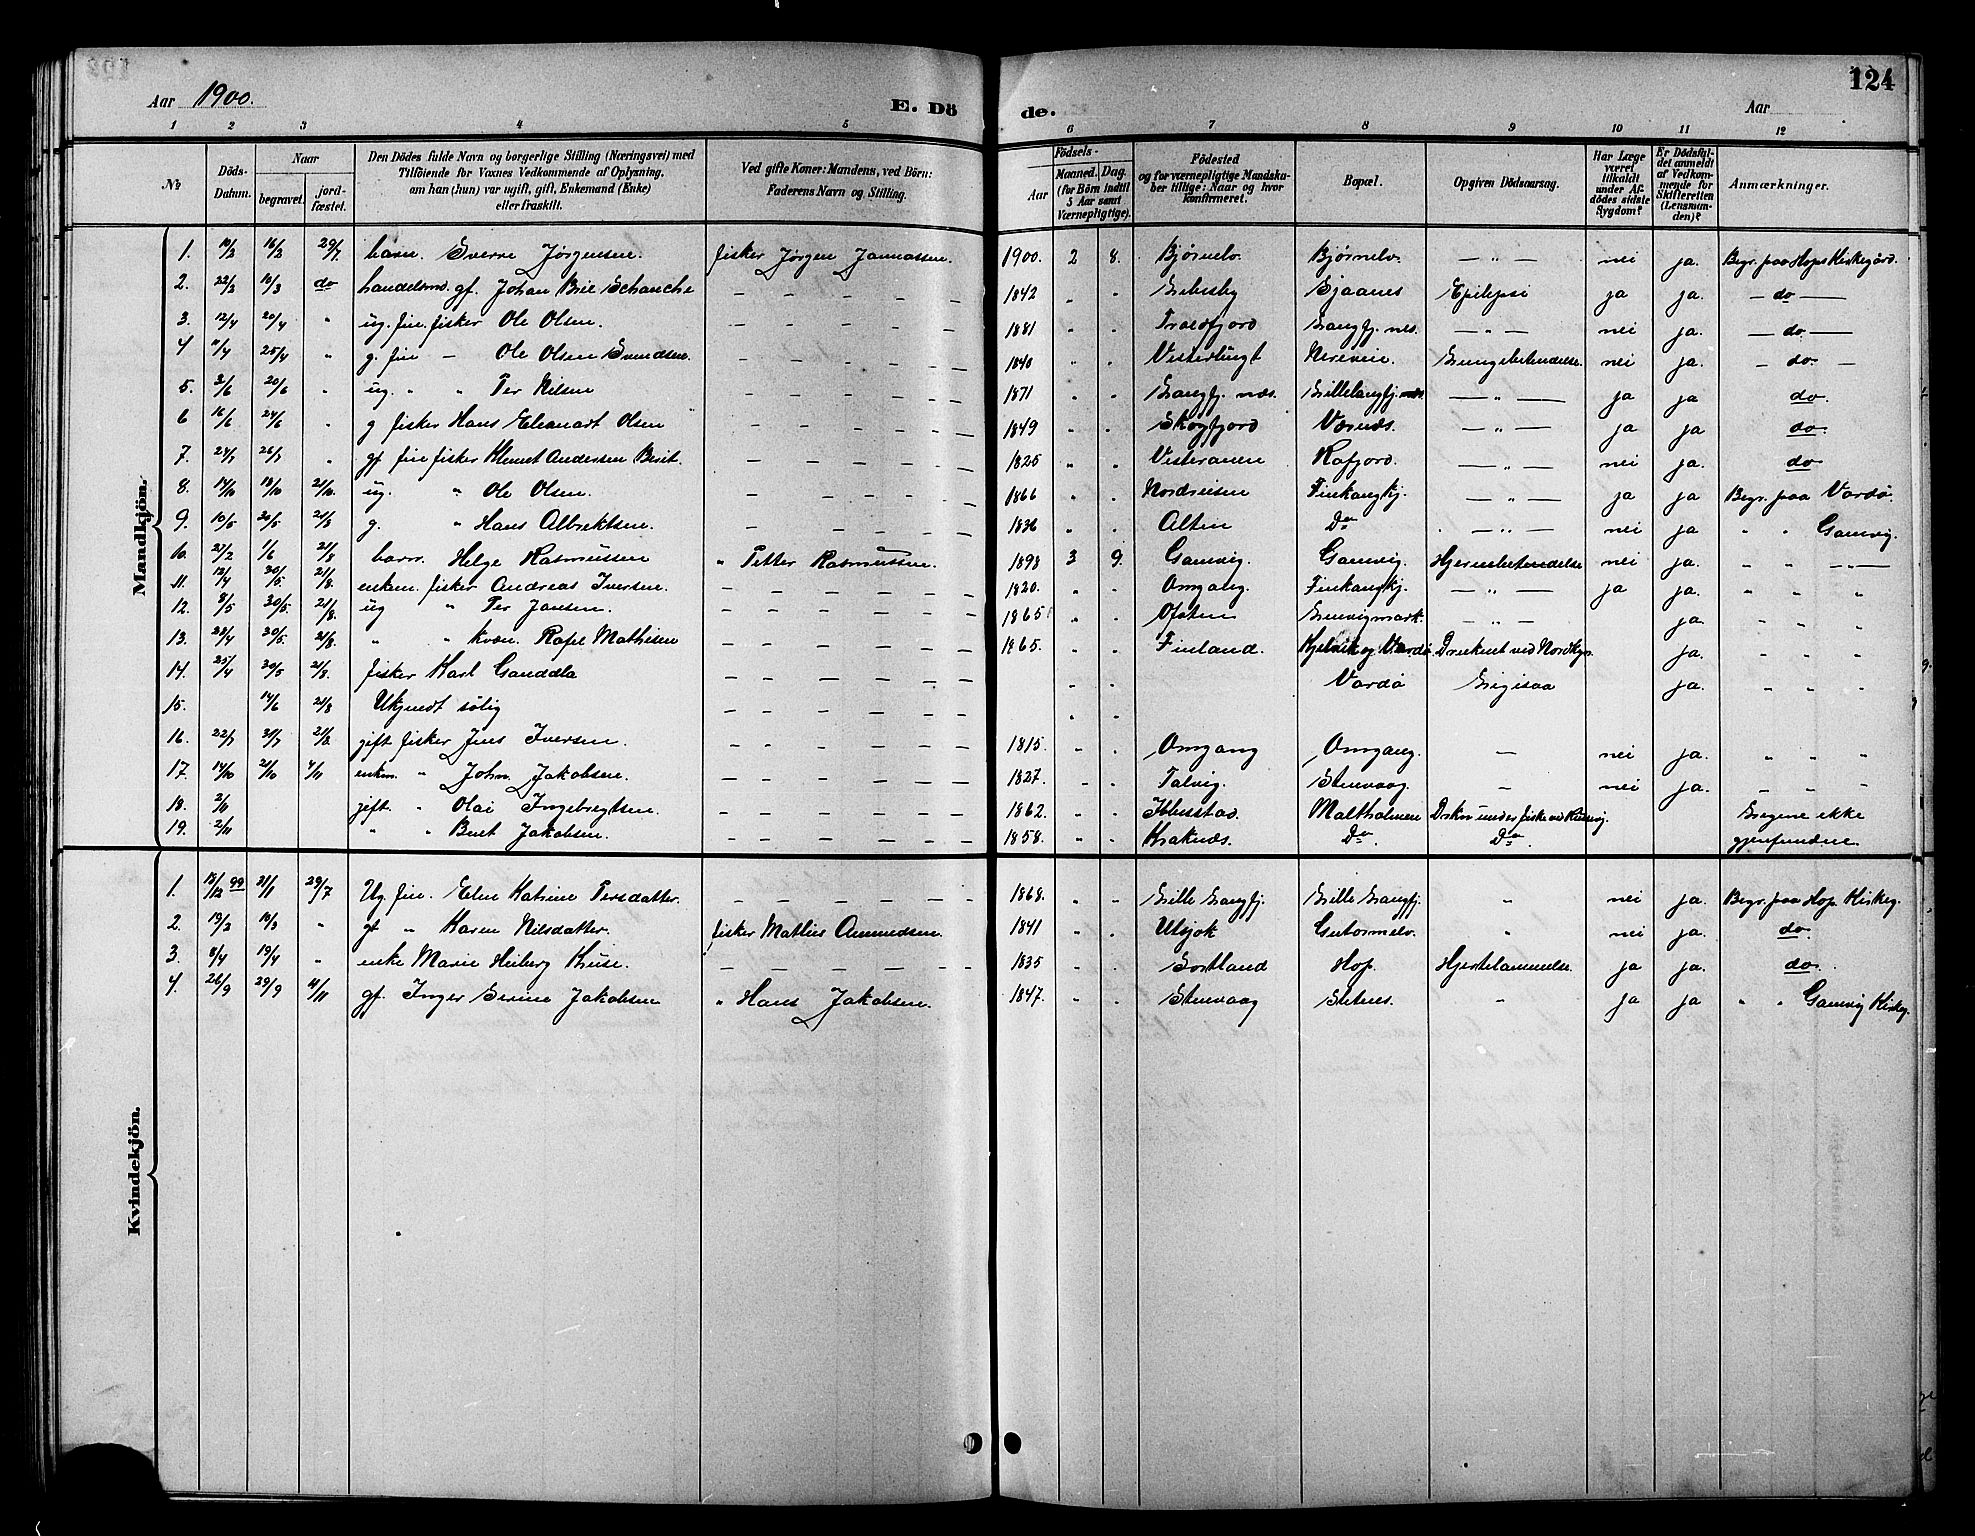 Aar 1900.
E. Dö
de.
Aar
124
1 2 3 4 5 6 7 8 9 10 11 12
No
Döds-Datum.
Naar
begravet.
jordfæstet.
Den Dödes fulde Navn og borgerlige Stilling (Næringsvei) med
Tilföiende for Voxnes Vedkommende af Oplysning,
om han (hun) var ugift, gift, Enkemand (Enke)
eller fraskilt.
Ved gifte Koner: Mandens, ved Börn:
Faderens Navn og Stilling.
Födsels-
Aar
Maaned. Dag.
(for Börn indtil
5 Aar samt
Værnepligtige).
Födested
og for værnepligtige Mandska-
ber tillige: Naar og hvor
konfirmeret.
Bopæl.
Opgiven Dödsaarsag.
Har Læge
været
tilkaldt
under Af-
dödes sidste
Sygdom?
Er Dödsfal-
det anmeldt
af Vedkom-
mende for
Skifteretten
(Lensman-
den)?
Anmærkninger.
Mandkjön.
1. 10/2 16/2 29/7 barn. Sverre Jørgensen. fisker Jørgen Jannassen. 1900. 2 8. Bjørnelv. Bjørnelv. — " — nei ja. Begr. paa Hops Kirkegård.
2. 22/2 10/3 do handelsmd. gf. Johan Brit Schanche — — — 1842 " " Lebesby Sjaanes Epilepsi ja ja. — do —
3. 12/4 20/4 " ug. fin. fisker Ole Olsen. — — — 1881 " " Troldfjord Langfj. nes. — " — nei ja. — do —
4 11/4 25/4 " g. fin — Ole Olsen Svendsen. — — — 1840 " " Vesterbugt Nereiein Lungebetendelse. nei ja. — do —
5. 3/6 20/6 " ug. " " Per Nilsen — — — 1871 " " Langfj. næs. Lillelangfj. næs. — " — ja ja do.
6 16/6 24/6 " g fisker Hans Eleonart Olsen — — — 1849 " " Skogfjord Værnæs. — " — ja ja do.
7. 24/7 26/7 " gf fin fisker Klemet Andersen Berit. — — — 1825 " " Vesteranen Kafjord. — " — nei ja. do
8. 14/10 18/10 21/10. ug. " Ole Olsen. — — — 1866 " " Nordreisen Finkongkj. — " — ja ja Begr. paa Vardø.
9. 10/5 30/5 21/8 g. " Hans Albrektsen. — — — 1836 " " Alten Do — " — nei ja " " Gamvig.
10. 21/2 1/6 21/8 barn. Helge Rasmussen " Petter Rasmussen. 1898 3 9. Gamvig. Gamvig. Hjernebetendelse nei ja. " " —"—
11. 12/4 30/5 21/8. enkem. fisker Andreas Iversen. — — — 1820. " " Omgang. Finkongkj. — " — ja ja. " " "
12. 8/5 30/5. 21/8. ug " Per Jansen. — — — 1865 " " Ofoten — " — ja. " " "
13. 22/4 30/5. 21/8. " " kvæn. Rafel Mathisen — — — 1865. " " Finland. Kjelvik og Vardø. Druknet ved Nordkyn. ja. " " "
14. 25/4 30/5 21/8. fisker Karl Ganddla — — — " " Vardø Ligisaa ja. " " "
15. 14/6 21/8 Ukjendt sølig — — — " "
16. 22/7 31/7 21/8. gift fisker Jens Iversen. — — — 1815. " " Omgang Omgang. — nei ja. " " "
17. 14/10 21/10 4/11 enkm. " John Jakobsen. — — — 1827. " " Talvig. Stenvaag. — nei ja. " " "
18. 2/11 gift. " Olai Ingebregtsen. — — — 1862. " " Malthalmen Ligene ikke
19. 2/11 " " Bert Jakobsen. — — — 1858. " " Kraknæs. Do. Do. gjenfundne.
Kvindekjön.
1. 15/12 99 31/1 29/7 Ug. fin. Elen Katrine Persdatter. — — — 1868. " " Lille Langfj. Lille Langfj. " nei ja. Begr. paa Hop. Kirkeg.
2. 19/2 10/3 " gf " Karen Nilsdatter. fisker Mathis Ammundsen. 1841 " " Utsjok Gutormelv. " nei ja. do.
3. 8/4 19/4 " enke Marie Heiberg Kruse. — — — 1835 " " Sortland Hop. Hjertelammelse. ja ja. do.
4. 26/9 29/9 11/11 gf. Inger Serine Jakobsen " Hans Jakobsen. 1847. " " Stenvaag Stetnes. " ja ja " " Gamvig Kirkeg.